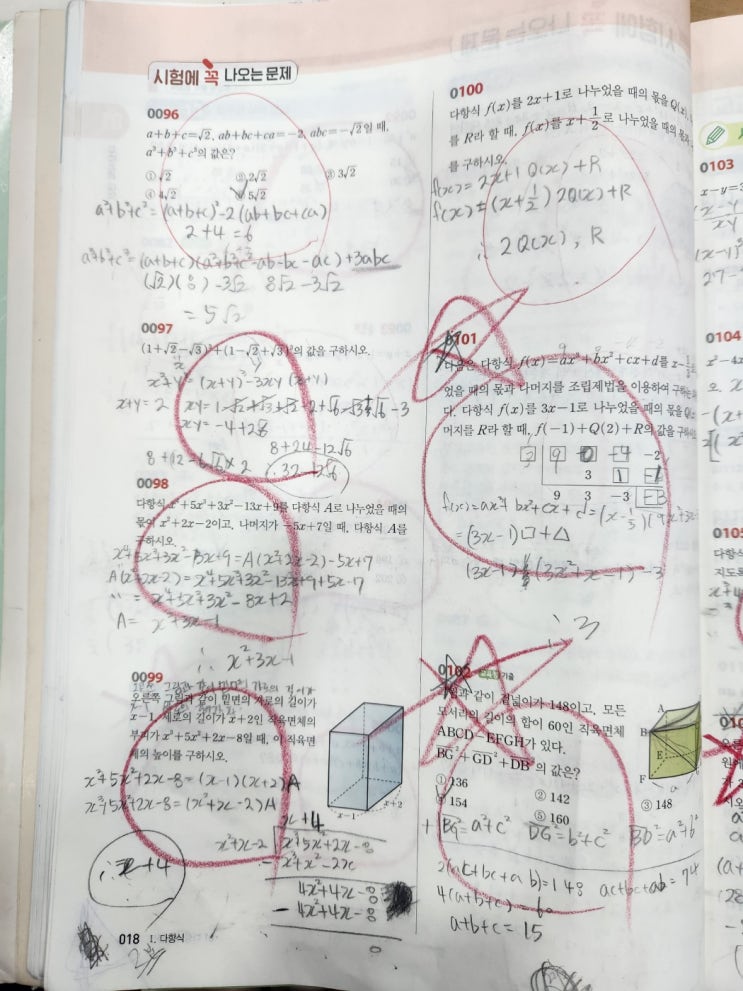 시험에 꼭 나오는 문제
0096
a+b+c=√2, ab+bc+ca=-2, abc=-√2일 때,
a³+b³+c³의 값은?
① √2 ② 2√2 ③ 3√2
④ 4√2 ⑤ 5√2
a²+b²+c²=(a+b+c)²-2(ab+bc+ca)
2+4=6
a³+b³+c³=(a+b+c)(a²+b²+c²-ab-bc-ac)+3abc
(√2)(8)-3√2 8√2-3√2
=5√2
0097
(1+√2-√3)³+(1-√2+√3)³의 값을 구하시오.
x³+y³=(x+y)³-3xy(x+y)
x+y=2
xy=-4+2√6
8+24-12√6
32-12√6
0098
다항식 x⁴+5x³+3x²-13x+9를 다항식 A로 나누었을 때의
몫이 x²+2x-2이고, 나머지가 -5x+7일 때, 다항식 A를
구하시오.
x⁴+5x³+3x²-13x+9=A(x²+2x-2)-5x+7
A(x²+2x-2)=x⁴+5x³+3x²-13x+9+5x-7
〃 =x⁴+5x³+3x²-8x+2
A= x²+3x-1
∴ x²+3x-1
0099
오른쪽 그림과 같이 밑면의 가로의 길이가
x-1, 세로의 길이가 x+2인 직육면체의
부피가 x³+5x²+2x-8일 때, 이 직육면
체의 높이를 구하시오.
x-1
x+2
x³+5x²+2x-8=(x-1)(x+2)A
x³+5x²+2x-8=(x²+x-2)A
x+4
x²+x-2 x³+5x²+2x-8
- x³+x²-2x
4x²+4x-8
- 4x²+4x-8
0
∴ x+4
018 I. 다항식
0100
다항식 f(x)를 2x+1로 나누었을 때의 몫을 Q(x),
를 R라 할 때, f(x)를 x+1/2로 나누었을 때의 몫과
를 구하시오.
f(x)=2x+1 Q(x)+R
f(x)=(x+1/2)2Q(x)+R
∴ 2Q(x), R
0101
다음은 다항식 f(x)=ax³+bx²+cx+d를
었을 때의 몫과 나머지를 조립제법을 이용하여
다. 다항식 f(x)를 3x-1로 나누었을 때의 몫을
머지를 R라 할 때, f(-1)+Q(2)+R의 값을
9 0 -4 -2
3 1 -1
9 3 -3 -3
f(x)=ax³+bx²+cx+d
=(3x-1)□+△
(3x-1)(3x²+x-1)-3
∴ 3
0102
같이 겉넓이가 148이고, 모든
모서리의 길이의 합이 60인 직육면체
ABCD-EFGH가 있다.
BG²+GD²+DB²의 값은?
① 136 ② 142 ③ 148
④ 154 ⑤ 160
A
B
E
F
a
BG²=a²+c² DG²=b²+c² BD²=a²+b²
2(ac+bc+ab)=148 ac+bc+ab=74
4(a+b+c)=60
a+b+c=15
0103
x-y=3
27-
0104